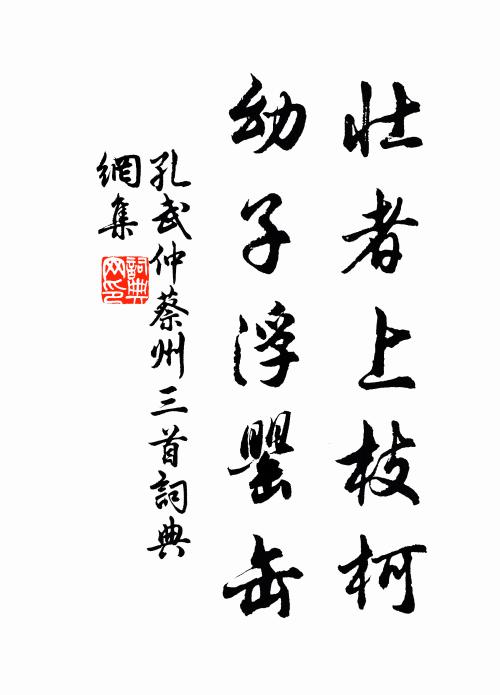 壯者上枝柯
幼子浮罌缶
孔武仲蔡州三首詞典
網集
詞典網印